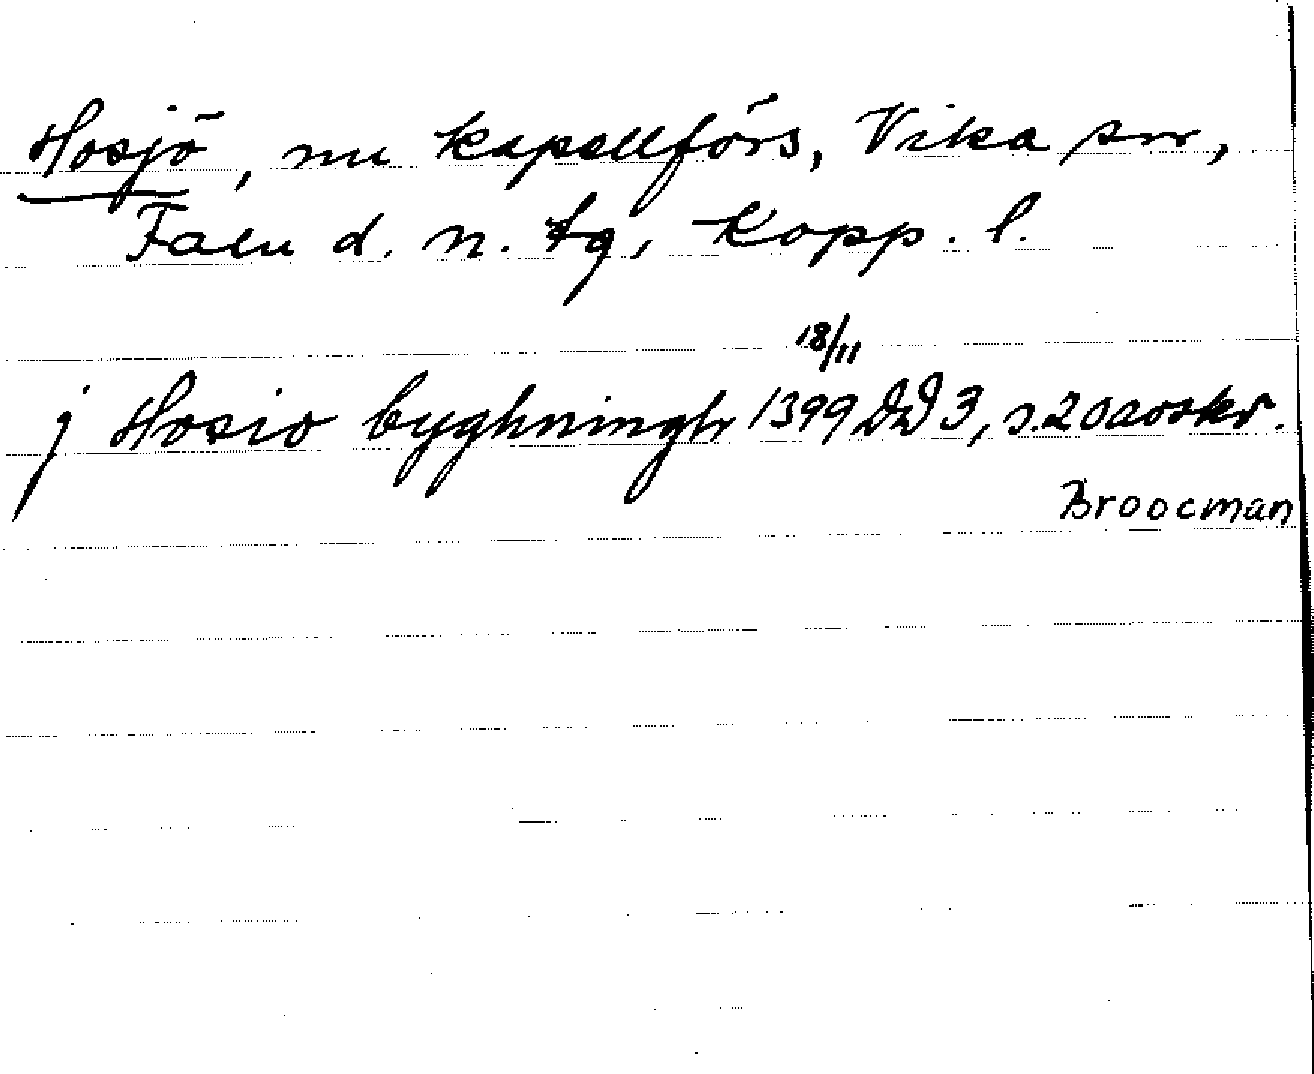 Hosjö, nu kapellförs, Vika sn,
Falu d. n. tg, Kopp. l.
18/11
j Hosio byghningh 1399 DD 3, s. 20 avskr.
Broocman